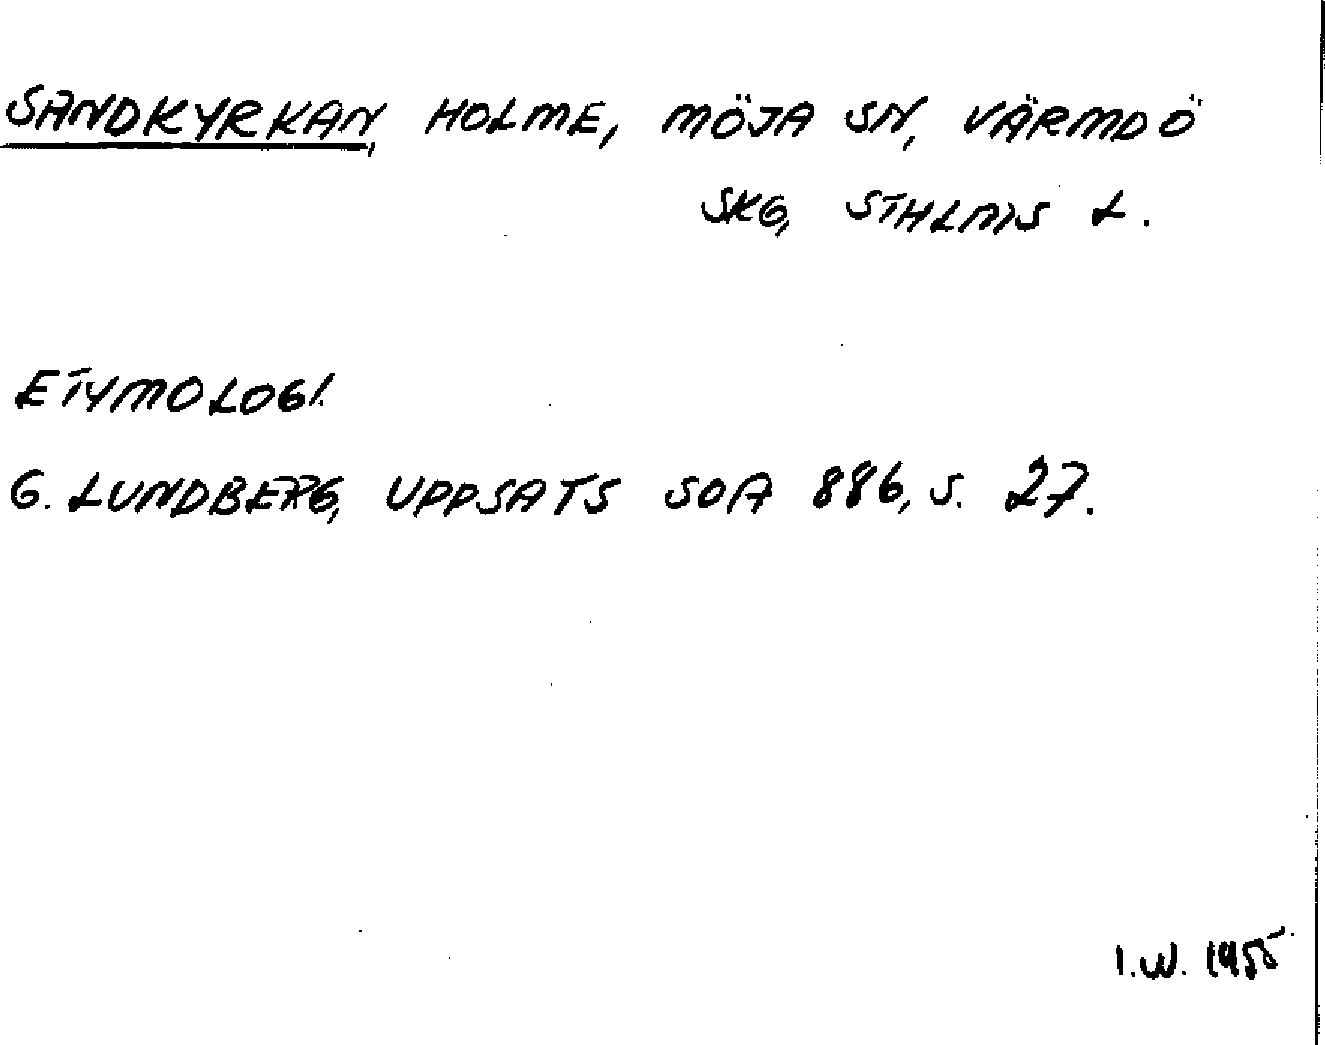 SANDKYRKAN, HOLME, MÖJA SN, VÄRMDÖ
SKG, STHLMS L.
ETYMOLOGI.
G. LUNDBERG, UPPSATS SOA 886, S. 27.
I.W. 1955